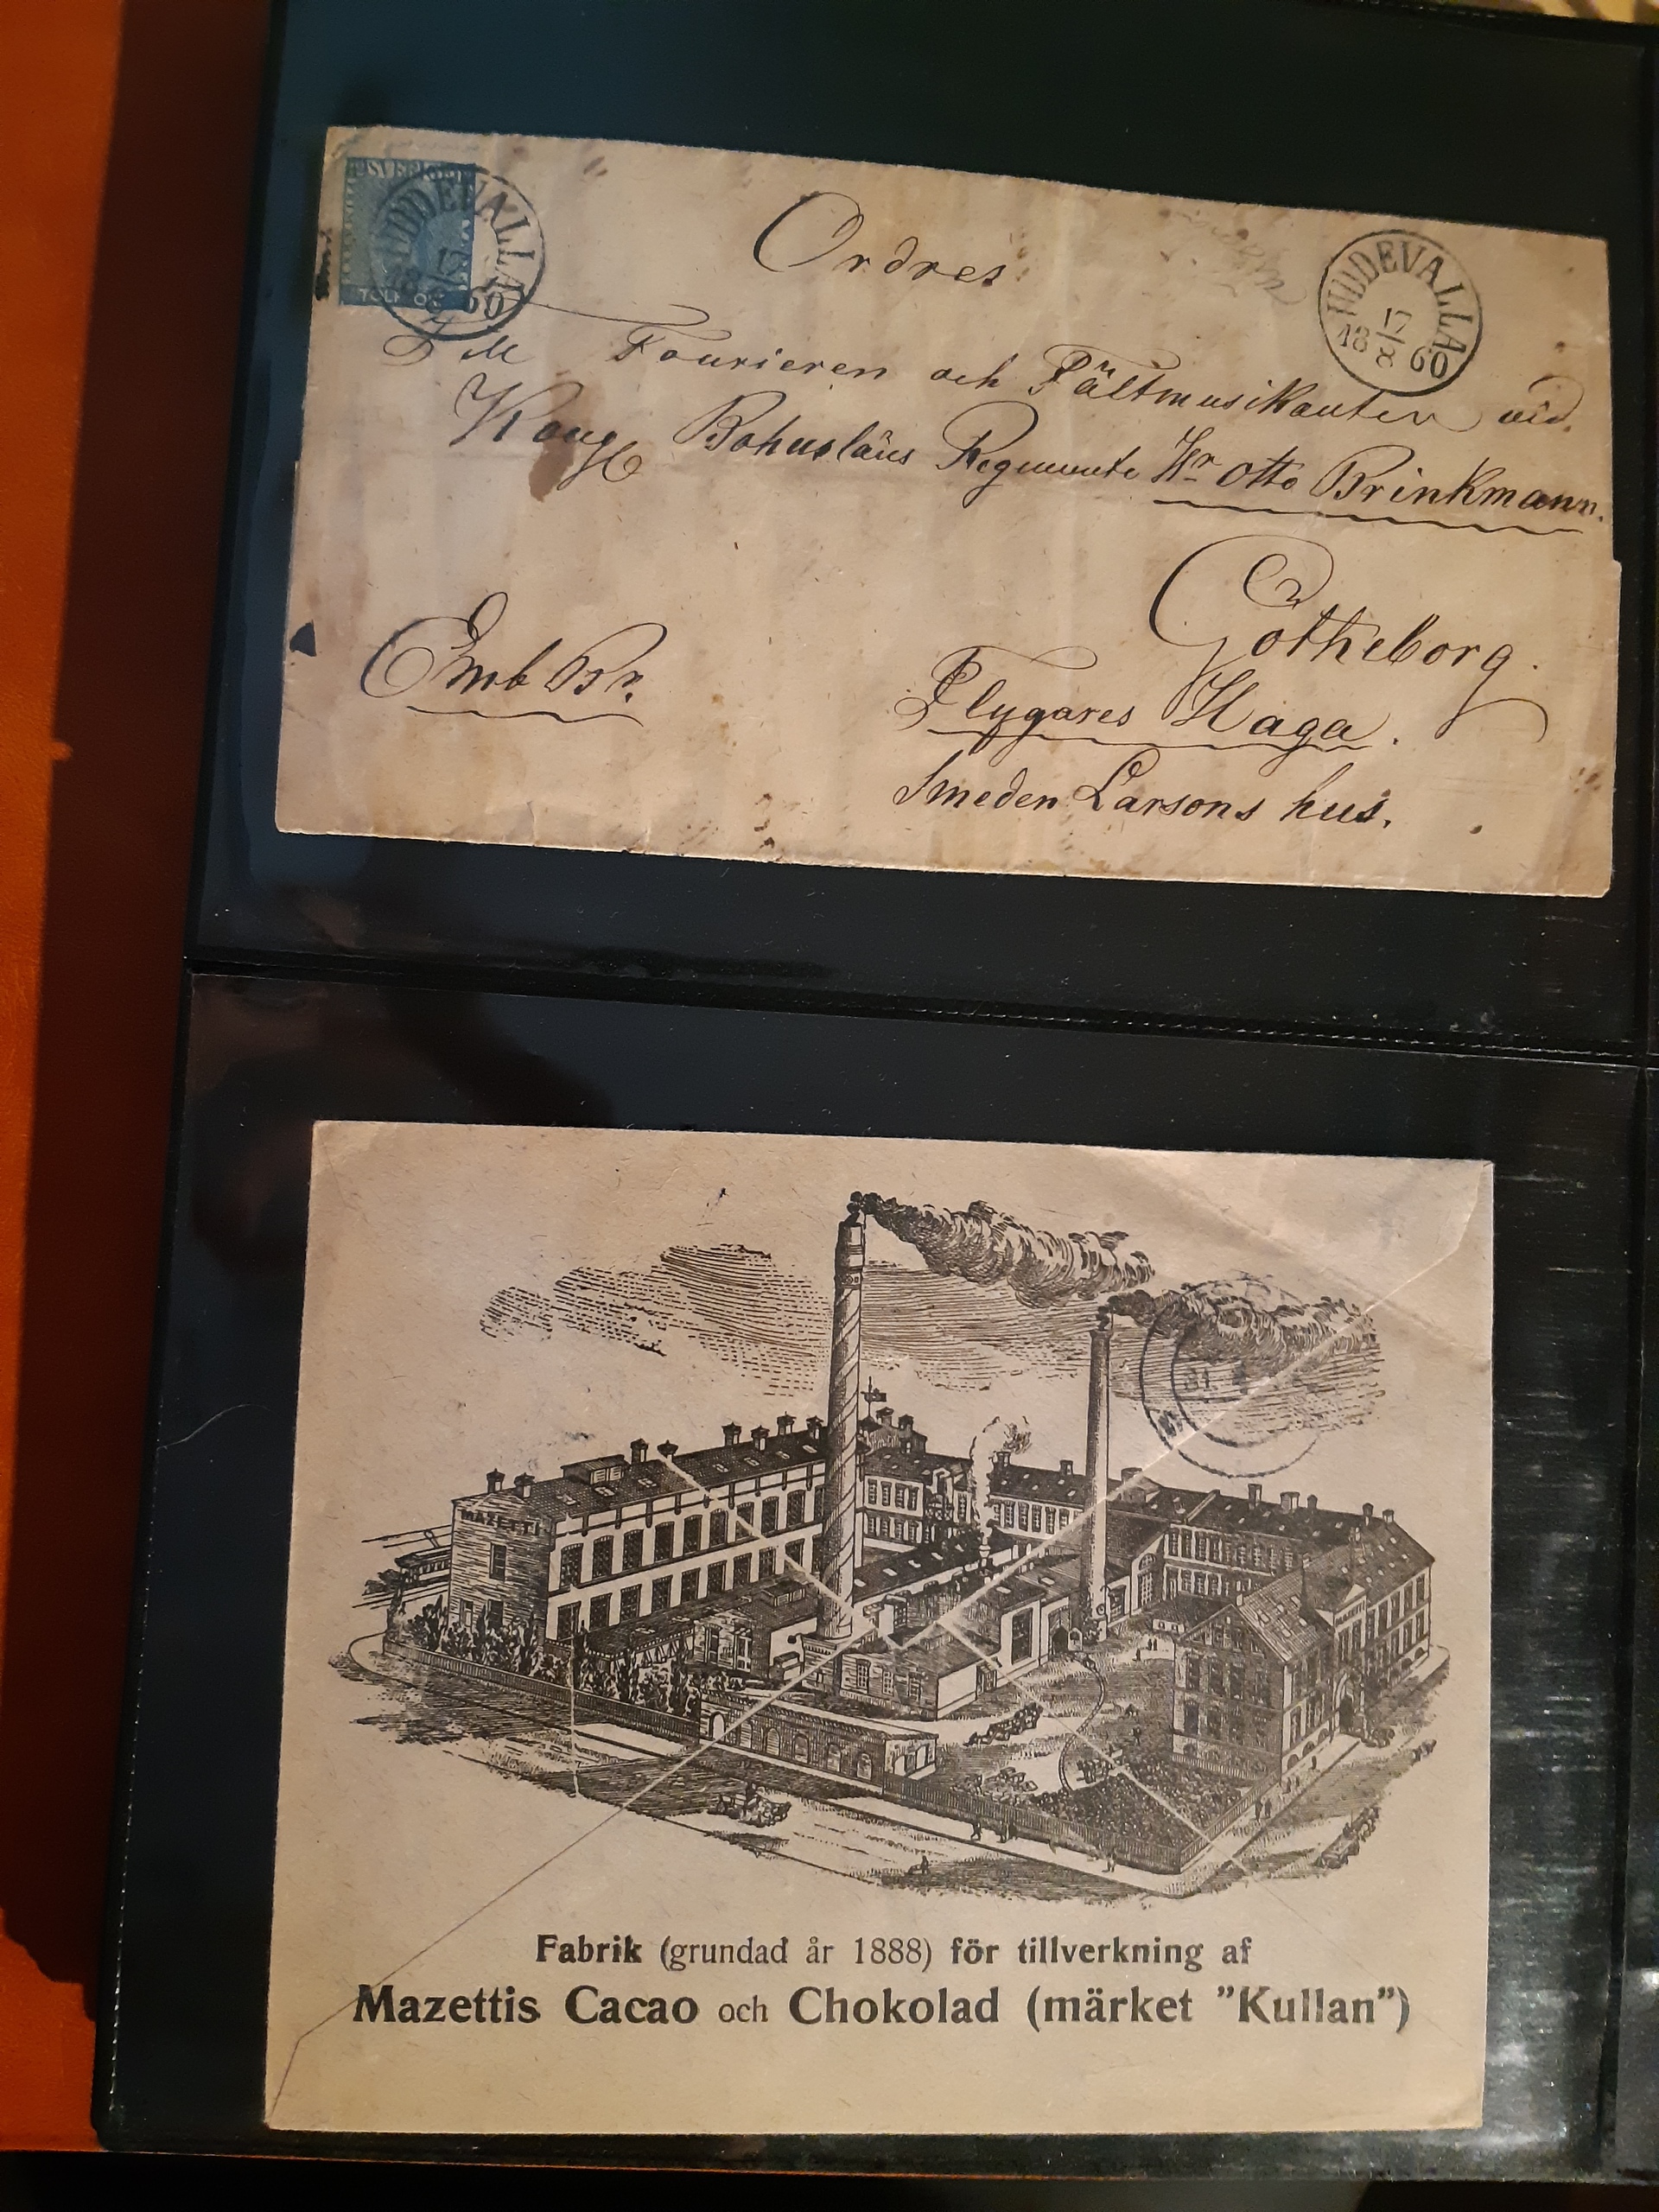 SVERIGE
UDDEVALLA
17
18 8 60
TOLF ÖRE
Ordres
UDDEVALLA
17
18 8 60
Fourieren och Fältmusikanten vid
Kongl Bohusläns Regemente Hr Otto Brinkmann.
Götheborg.
Emb Br.
Flygares Haga.
Smeden Larsons hus.
MAZETTI
Fabrik (grundad år 1888) för tillverkning af
Mazettis Cacao och Chokolad (märket ”Kullan”)